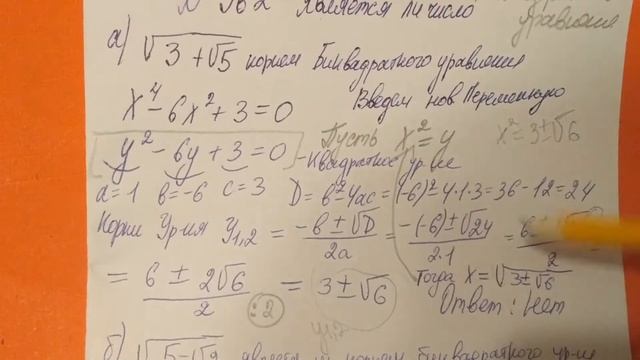 является ли число
уравнения
а) √(3 + √5) корнем биквадратного уравнения
x⁴ - 6x² + 3 = 0 Введем нов переменную
Пусть x² = y x² = 3 ± √6
y² - 6y + 3 = 0 - Квадратное ур-ие
a = 1 b = -6 c = 3 D = b² - 4ac = (-6)² - 4·1·3 = 36 - 12 = 24
Корни Ур-ия y₁,₂ = (-b ± √D)/2a = (-(-6) ± √24)/2·1 =
= (6 ± 2√6)/2 = 3 ± √6 Тогда x = √(3 ± √6)
:2 Ответ: Нет
y₁,₂
б) корнем биквадратного ур-ие